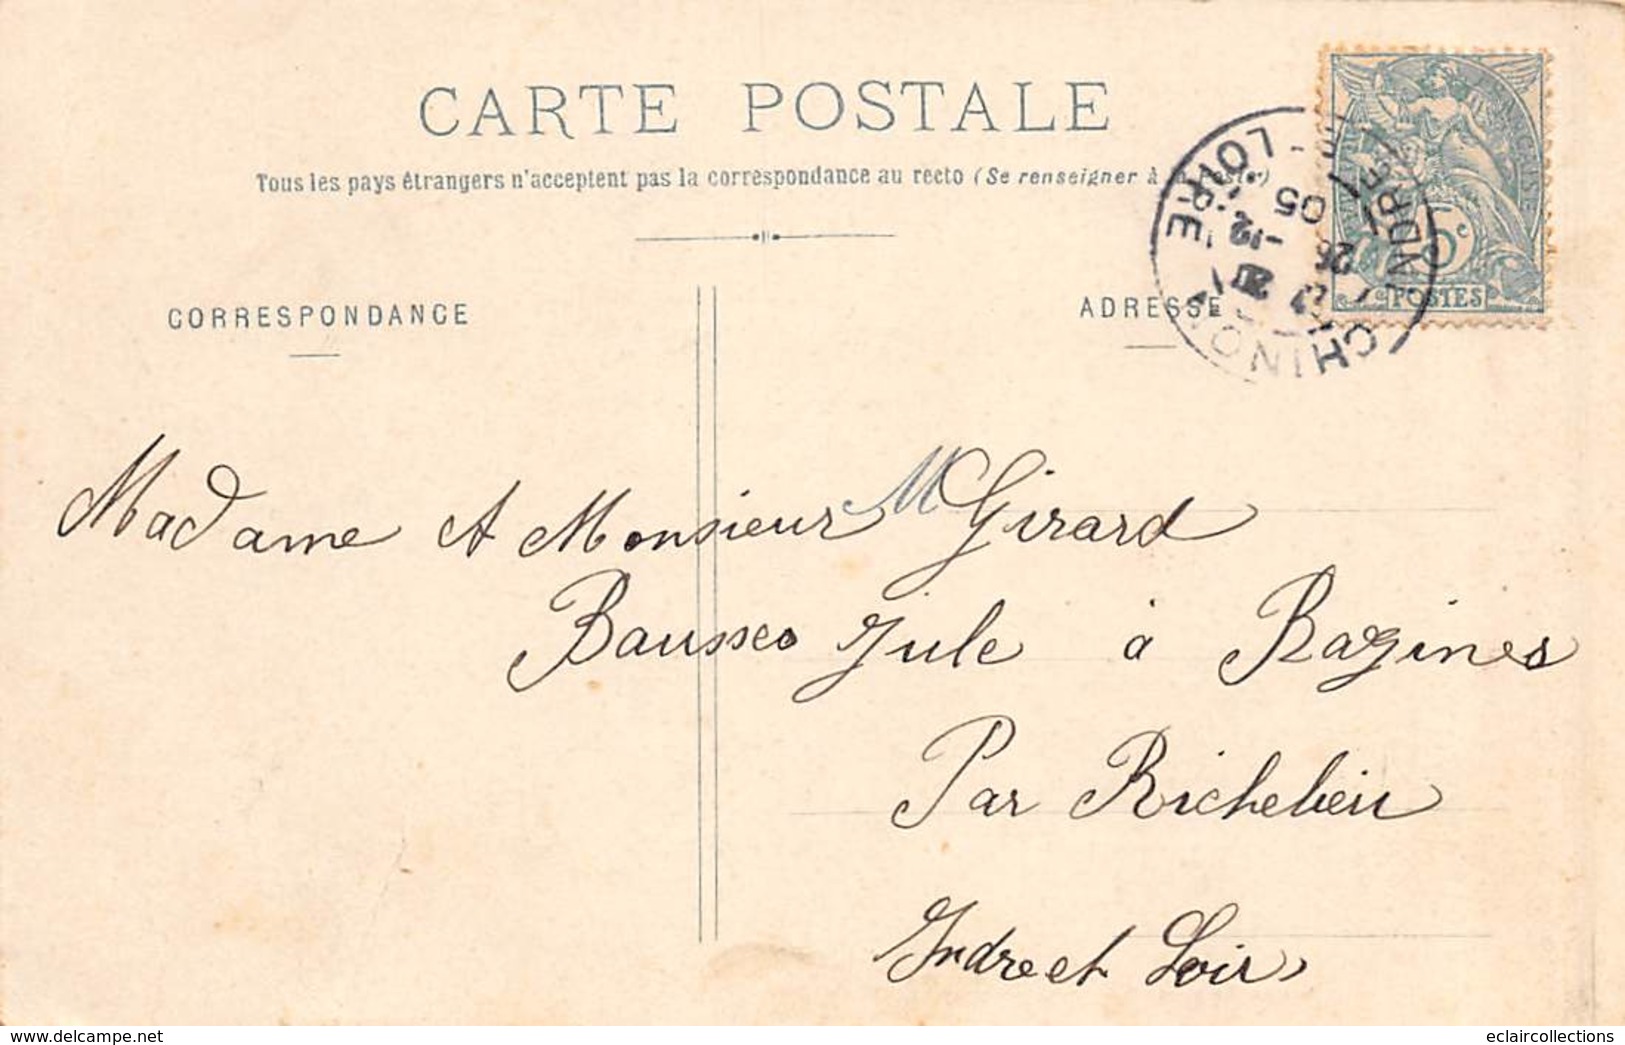 CARTE POSTALE
Tous les pays étrangers n'acceptent pas la correspondance au recto (Se renseigner à la Poste)
CORRESPONDANCE
ADRESSE
CHINON
INDRE-ET-LOIRE
26
12
05
5c
POSTES
Madame et Monsieur M Girard
Bausse Jule à Razines
Par Richelieu
Indre et Loir
delcampe.net
eclaircollections